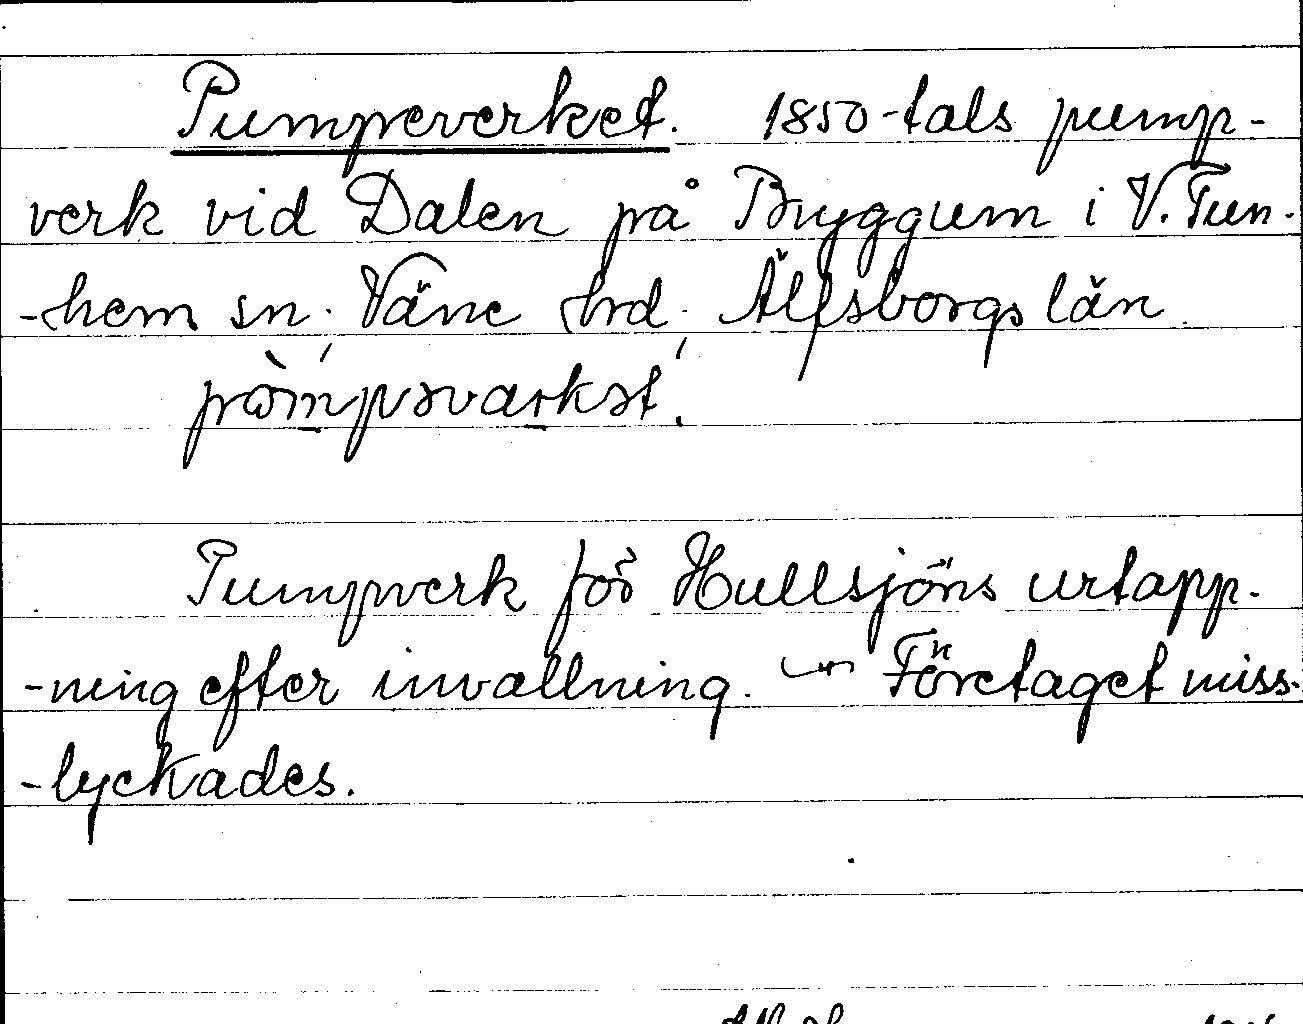 Pumpeverket. 1850-tals pump-
verk vid Dalen på Bryggum i V. Tun-
-hem sn. Väne hrd. Älfsborgs län.
Pumpverk för Hullsjöns urtapp-
-ning efter invallning. — Företaget miss-
-lyckades.